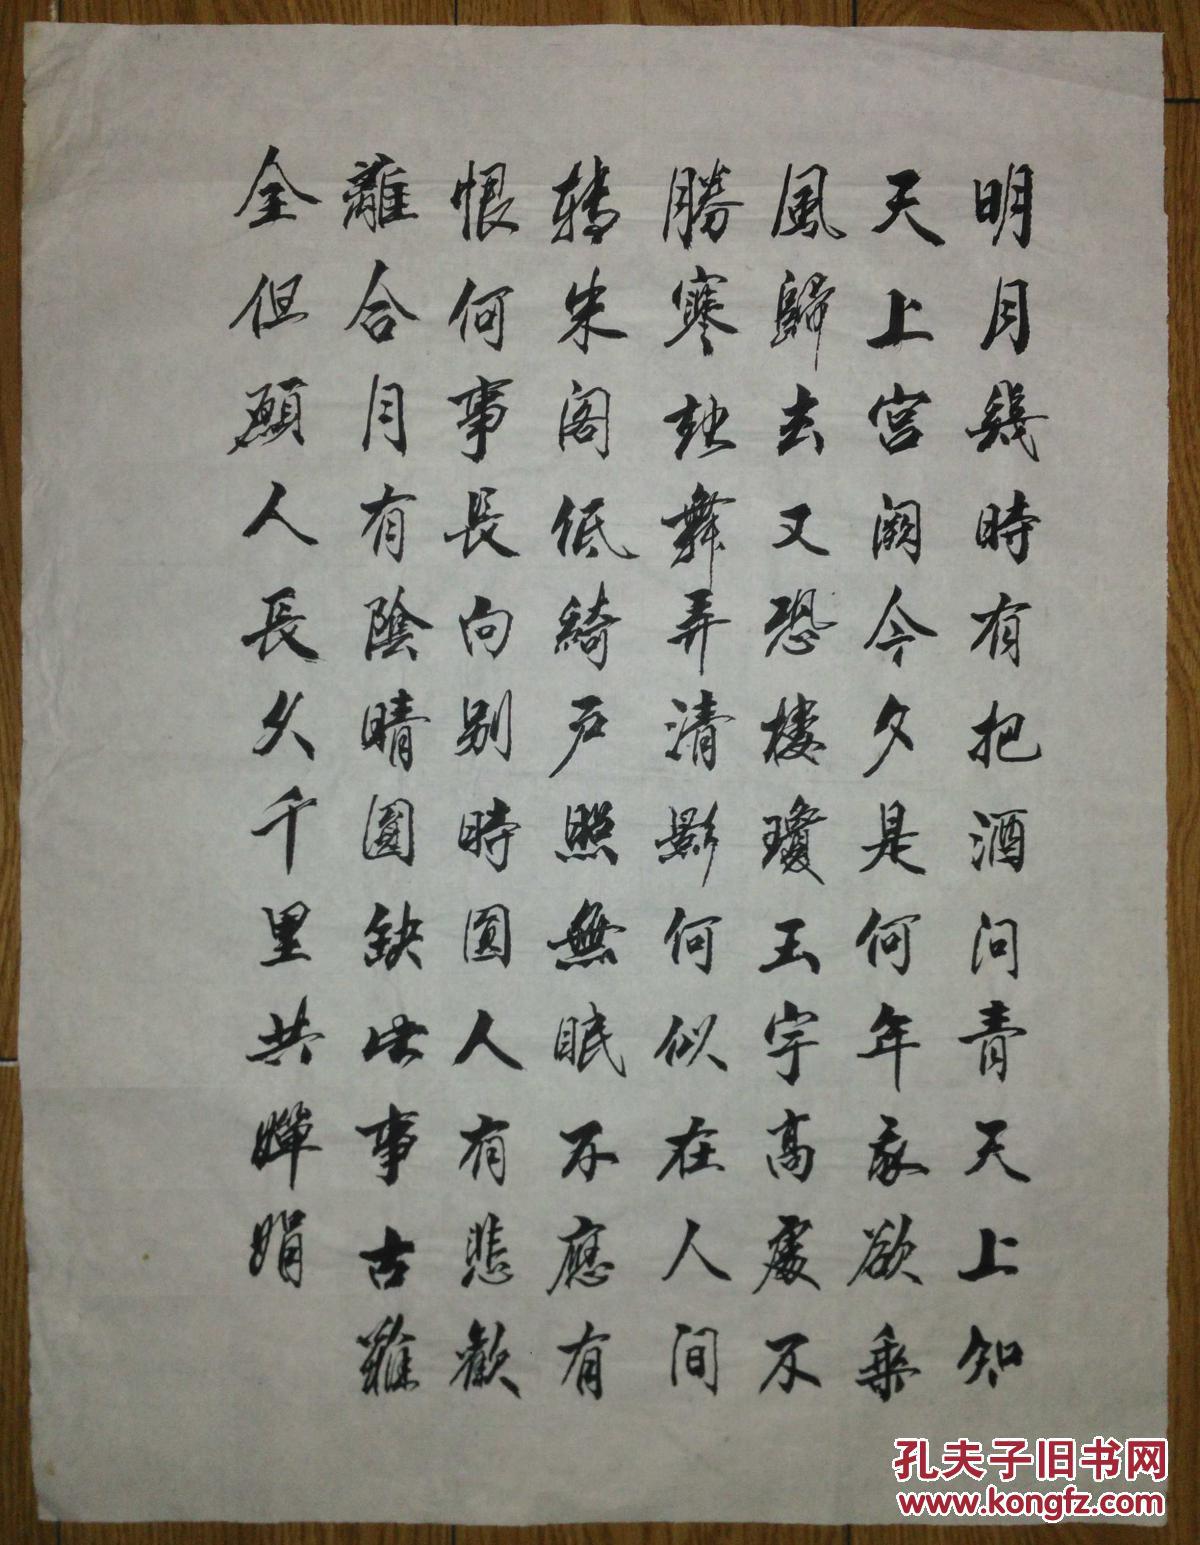 明月幾時有把酒问青天上知
天上宫阙今夕是何年我欲乘
風歸去又恐樓瓊玉宇高處不
勝寒起舞弄清影何似在人间
轉朱阁低綺户照無眠不應有
恨何事長向别時圓人有悲歡
離合月有陰晴圓缺此事古難
全但願人長久千里共嬋娟
孔夫子旧书网
www.kongfz.com